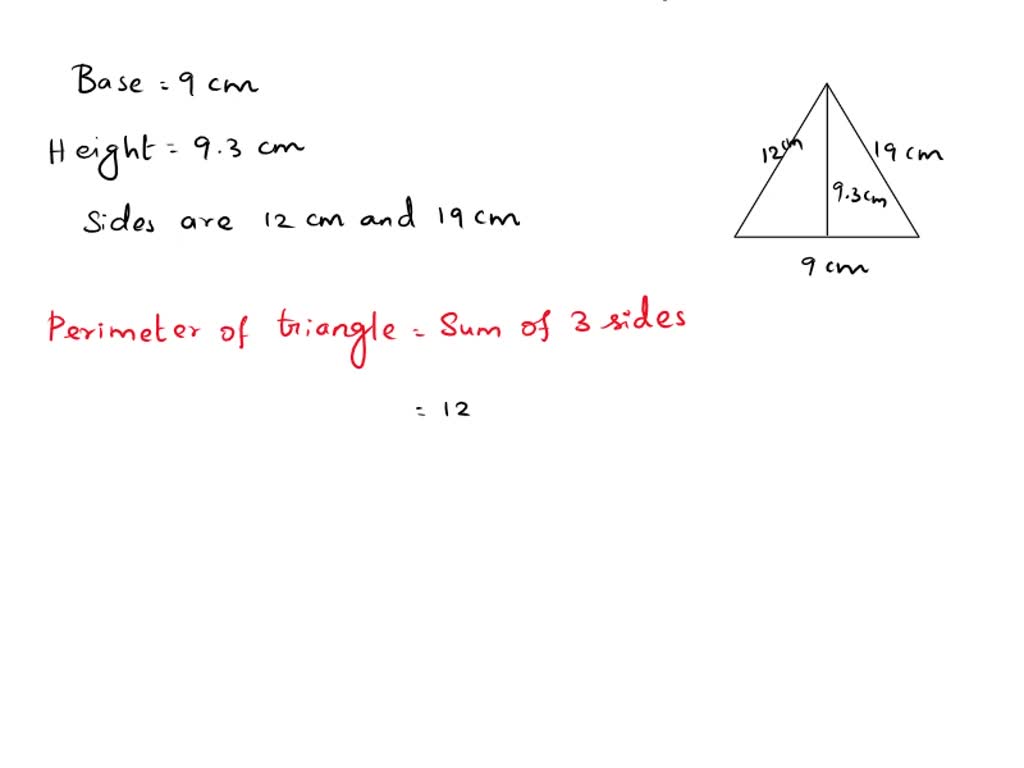 Base = 9 cm
Height = 9.3 cm
Sides are 12 cm and 19 cm
12 cm
19 cm
9.3 cm
9 cm
Perimeter of triangle = Sum of 3 sides
= 12